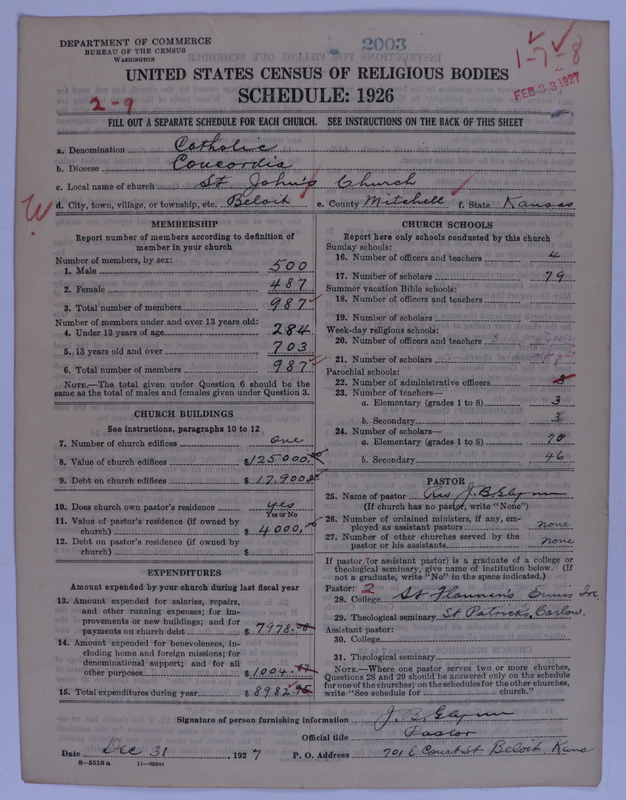 DEPARTMENT OF COMMERCE
BUREAU OF THE CENSUS
WASHINGTON
2003
1-7-8
FEB 23 1927
UNITED STATES CENSUS OF RELIGIOUS BODIES
SCHEDULE: 1926
2-9
FILL OUT A SEPARATE SCHEDULE FOR EACH CHURCH. SEE INSTRUCTIONS ON THE BACK OF THIS SHEET
a. Denomination Catholic
b. Diocese Concordia
c. Local name of church St John's Church
d. City, town, village, or township, etc. Beloit e. County Mitchell f. State Kansas
W
MEMBERSHIP
Report number of members according to definition of
member in your church
Number of members, by sex:
1. Male 500
2. Female 487
3. Total number of members 987
Number of members under and over 13 years old:
4. Under 13 years of age 284
5. 13 years old and over 703
6. Total number of members 987
NOTE.—The total given under Question 6 should be the
same as the total of males and females given under Question 3.
CHURCH BUILDINGS
See instructions, paragraphs 10 to 12
7. Number of church edifices one
8. Value of church edifices $125000.00
9. Debt on church edifices $17,900
10. Does church own pastor's residence yes
Yes or No
11. Value of pastor's residence (if owned by
church) $4000.00
12. Debt on pastor's residence (if owned by
church) $
EXPENDITURES
Amount expended by your church during last fiscal year
13. Amount expended for salaries, repairs,
and other running expenses; for im-
provements or new buildings; and for
payments on church debt $7978.
14. Amount expended for benevolences, in-
cluding home and foreign missions; for
denominational support; and for all
other purposes $1004.
15. Total expenditures during year $8982
CHURCH SCHOOLS
Report here only schools conducted by this church
Sunday schools:
16. Number of officers and teachers 4
17. Number of scholars 79
Summer vacation Bible schools:
18. Number of officers and teachers
19. Number of scholars
Week-day religious schools:
20. Number of officers and teachers
21. Number of scholars
Parochial schools:
22. Number of administrative officers
23. Number of teachers—
a. Elementary (grades 1 to 8) 3
b. Secondary 3
24. Number of scholars—
a. Elementary (grades 1 to 8) 70
b. Secondary 46
PASTOR
25. Name of pastor Rev J. B. Glynn
(If church has no pastor, write "None")
26. Number of ordained ministers, if any, em-
ployed as assistant pastors none
27. Number of other churches served by the
pastor or his assistants none
If pastor (or assistant pastor) is a graduate of a college or
theological seminary, give name of institution below. (If
not a graduate, write "No" in the space indicated.)
Pastor: 2
28. College St Flannen's Ennis Ire
29. Theological seminary St Patrick's, Carlow.
Assistant pastor:
30. College
31. Theological seminary
NOTE.—Where one pastor serves two or more churches,
Questions 28 and 29 should be answered only on the schedule
for one of the churches; on the schedules for the other churches,
write "See schedule for church."
Signature of person furnishing information J. B. Glynn
Official title Pastor
Date Dec 31 1927 P. O. Address 701 E Court St Beloit Kans
8-5518a